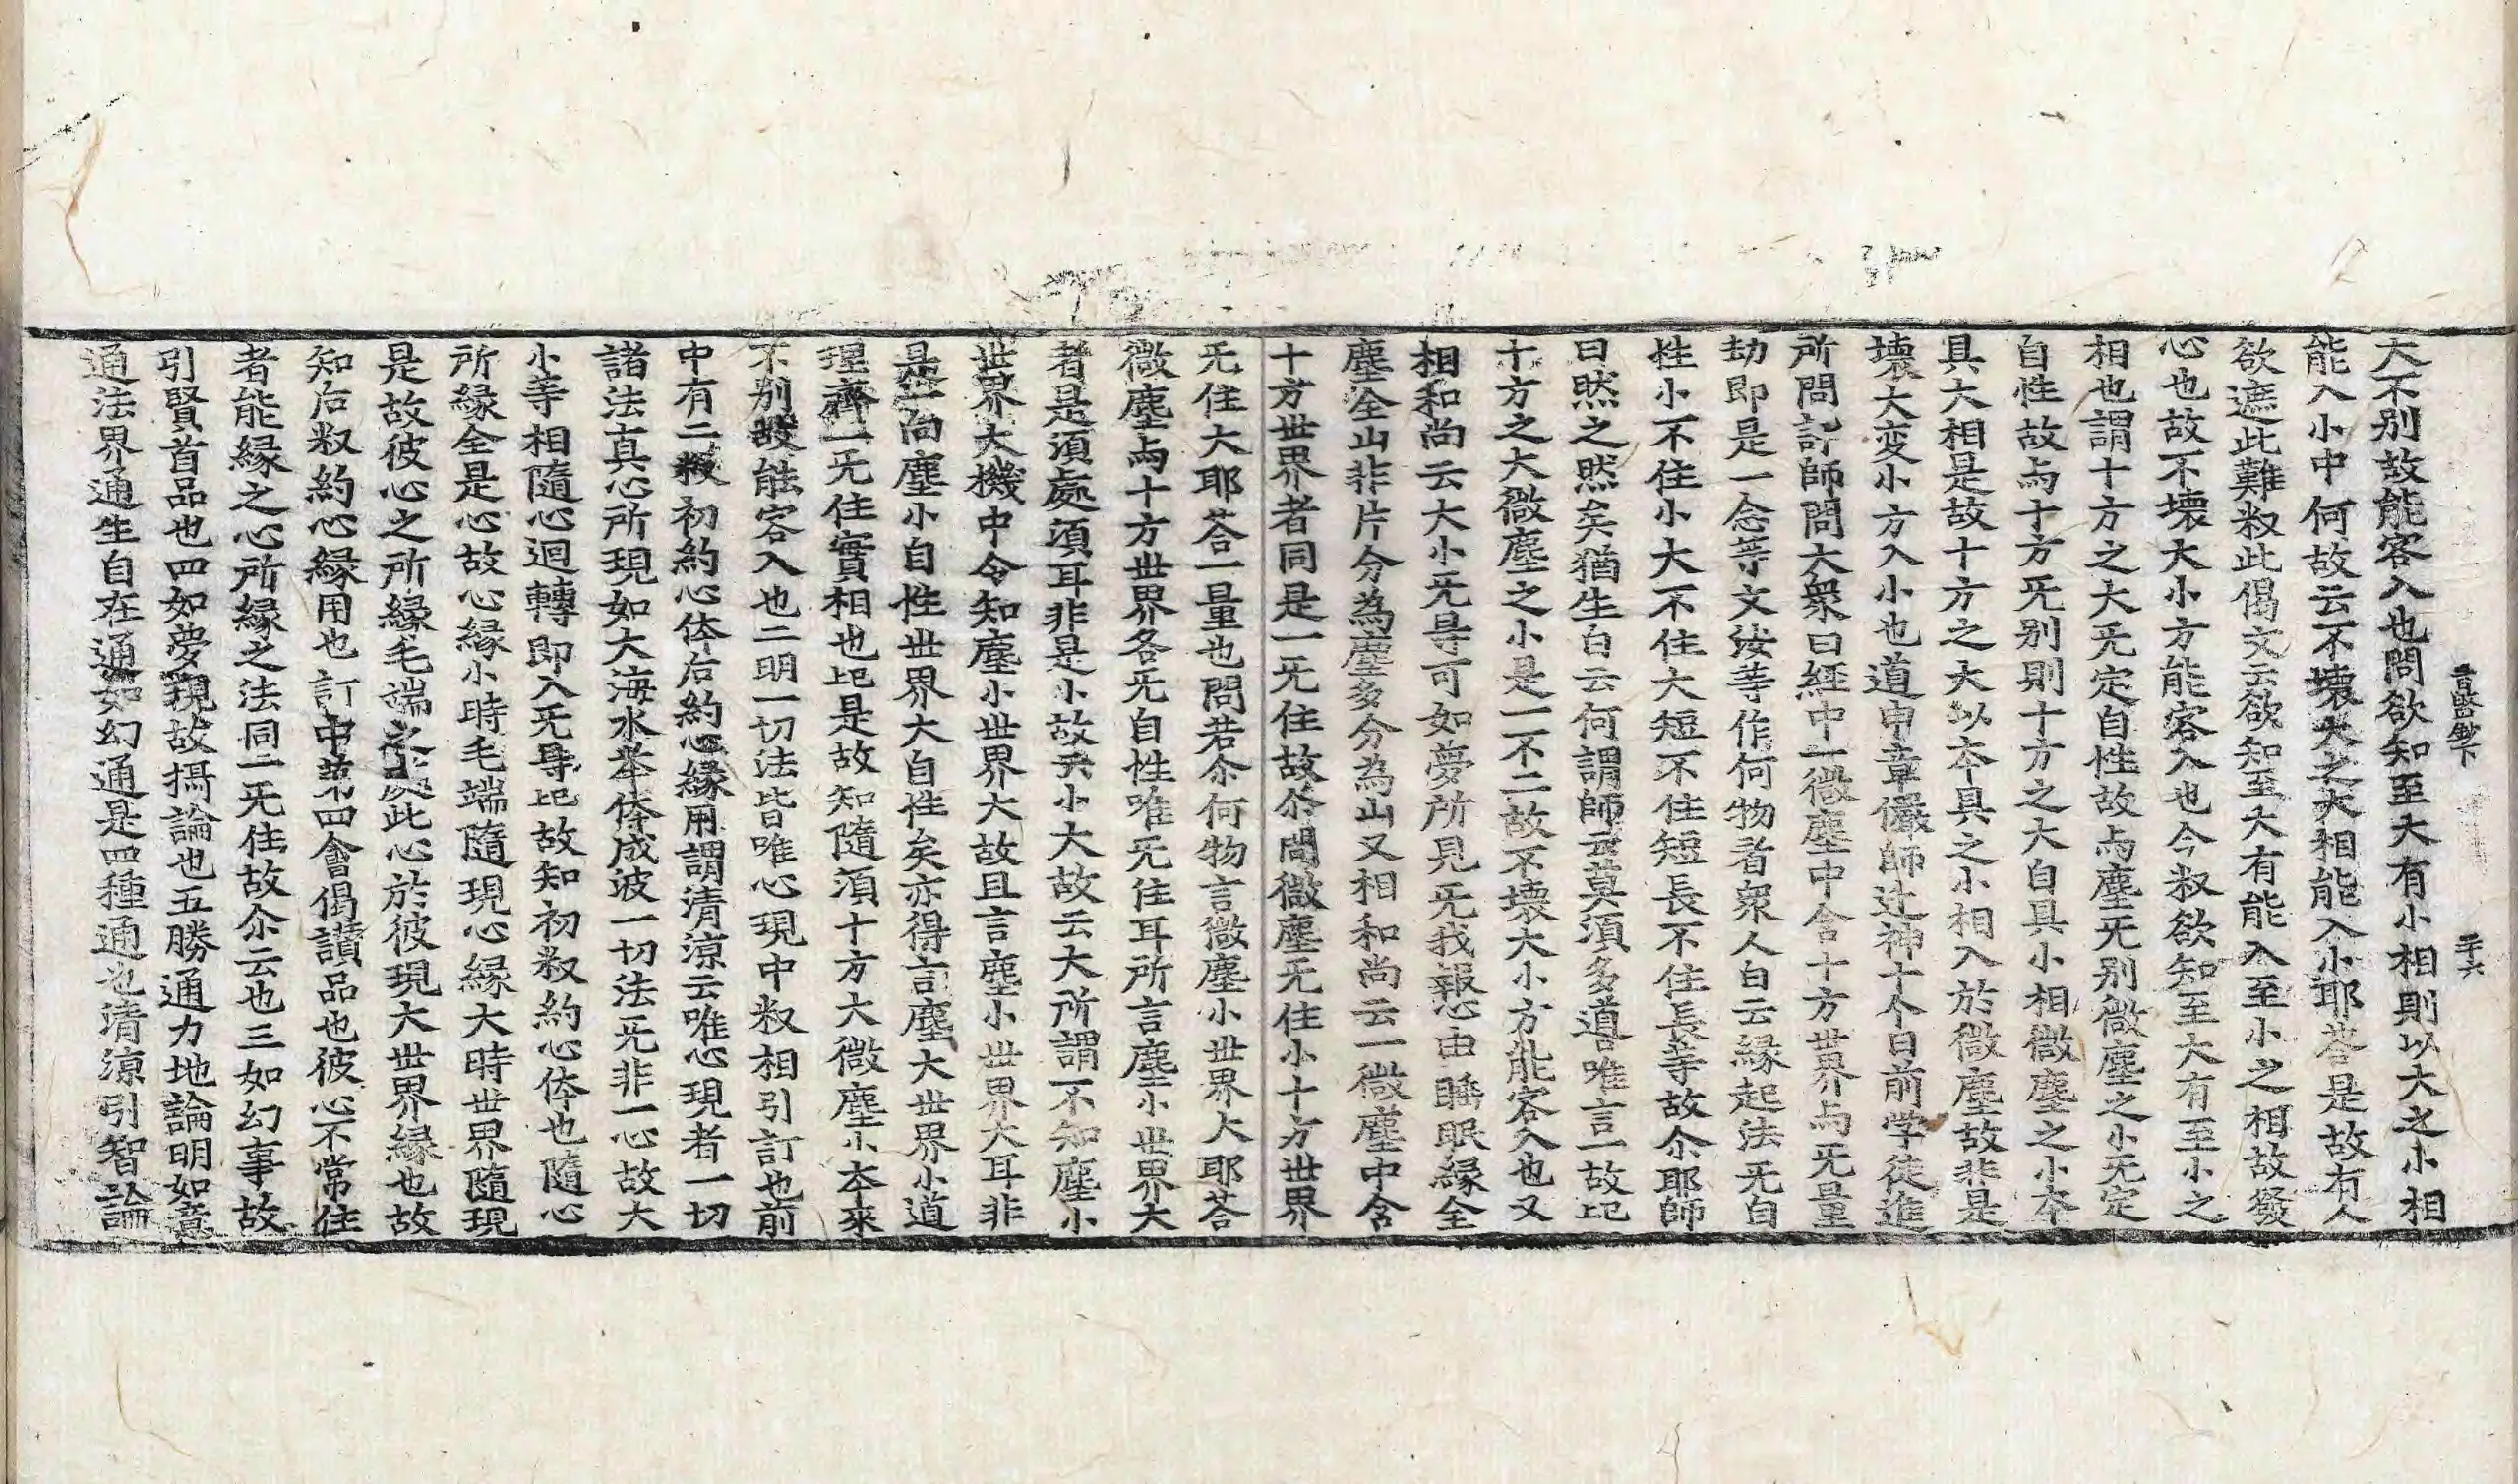 大不别故能容入也問欲知至大有小相則以大之小相
能入小中何故云不壞大之大相能入小耶荅是故有人
欲遮此難叙此偈文云欲知至大有能入至小之相故發
心也故不壞大小方能容入也今叙欲知至大有至小之
相也謂十方之大旡定自性故与塵旡别微塵之小旡定
自性故与十方旡别則十方之大自具小相微塵之小本
具大相是故十方之大以本具之小相入於微塵故非是
壞大变小方入小也道申章儼師迁神十个日前学徒進
所問訂師問大衆曰經中一微塵中含十方世界与旡量
劫即是一念等文汝等作何物看衆人白云縁起法旡自
性小不住小大不住大短不住短長不住長等故尒耶師
曰然之然矣猶生白云何謂師云莫須多道唯言一故
十方之大微塵之小是一不二故不壞大小方能容入也又
相和尚云大小旡导可如夢所見旡我報心由睡眠縁全
塵全山非片分為塵多分為山又相和尚云一微塵中含
十方世界者同是一旡住故尒問微塵旡住小十方世界
旡住大耶荅一量也問若尒何物言微塵小世界大耶荅
微塵与十方世界各旡自性唯旡住耳所言塵小世界大
者是須處須耳非是小故云小大故云大所謂不知塵小
世界大機中令知塵小世界大故且言塵小世界大耳非
是一向塵小自性世界大自性矣亦得言塵大世界小道
理齊一旡住實相也是故知隨須十方大微塵小本來
不别故能容入也二明一切法皆唯心現中叙相引訂也前
中有二叙初約心体后約心縁用謂清涼云唯心現者一切
諸法真心所現如大海水舉体成波一切法旡非一心故大
小等相隨心迴轉即入旡导故知初叙約心体也隨心
所縁全是心故心縁小時毛端隨現心縁大時世界隨現
是故彼心之所縁毛端之處此心於彼現大世界縁也故
知后叙約心縁用也訂中第四會偈讃品也彼心不常住
者能縁之心所縁之法同一旡住故尒云也三如幻事故
引賢首品也四如夢現故攝論也五勝通力地論明如意
通法界通生自在通如幻通是四種通也清涼引智論